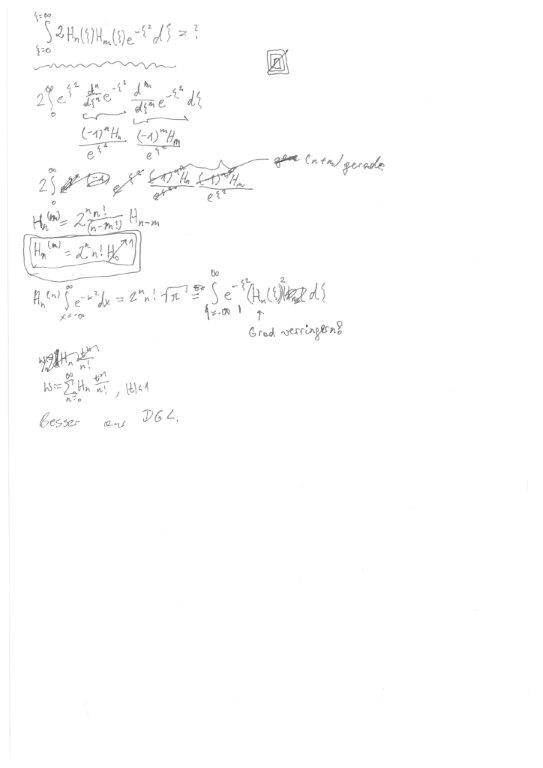 ∫_{ξ=0}^{ξ=∞} 2H_n(ξ)H_m(ξ)e^{-ξ²}dξ = ?
2∫_0^∞ e^{ξ²} d^n/dξ^n e^{-ξ²} d^m/dξ^m e^{-ξ²} dξ
(-1)^n H_n / e^{ξ²} (-1)^m H_m / e^{ξ²}
2∫_0^∞ e^{ξ²} (-1)^n H_n / e^{ξ²} (-1)^m H_m / e^{ξ²} (n+m) gerade
H_n^{(m)} = 2^n n!/(n-m!) H_{n-m}
H_n^{(n)} = 2^n n! H_0 ↗1
H_n^{(n)} ∫_{x=-∞}^∞ e^{-x²}dx = 2^n n! √π = ∫_{ξ=-∞}^∞ e^{-ξ²}(H_n(ξ))² dξ
↑
Grad verringern?
w = ∑_{n=0}^∞ H_n t^n/n! , |t|<1
Besser aus DGL.